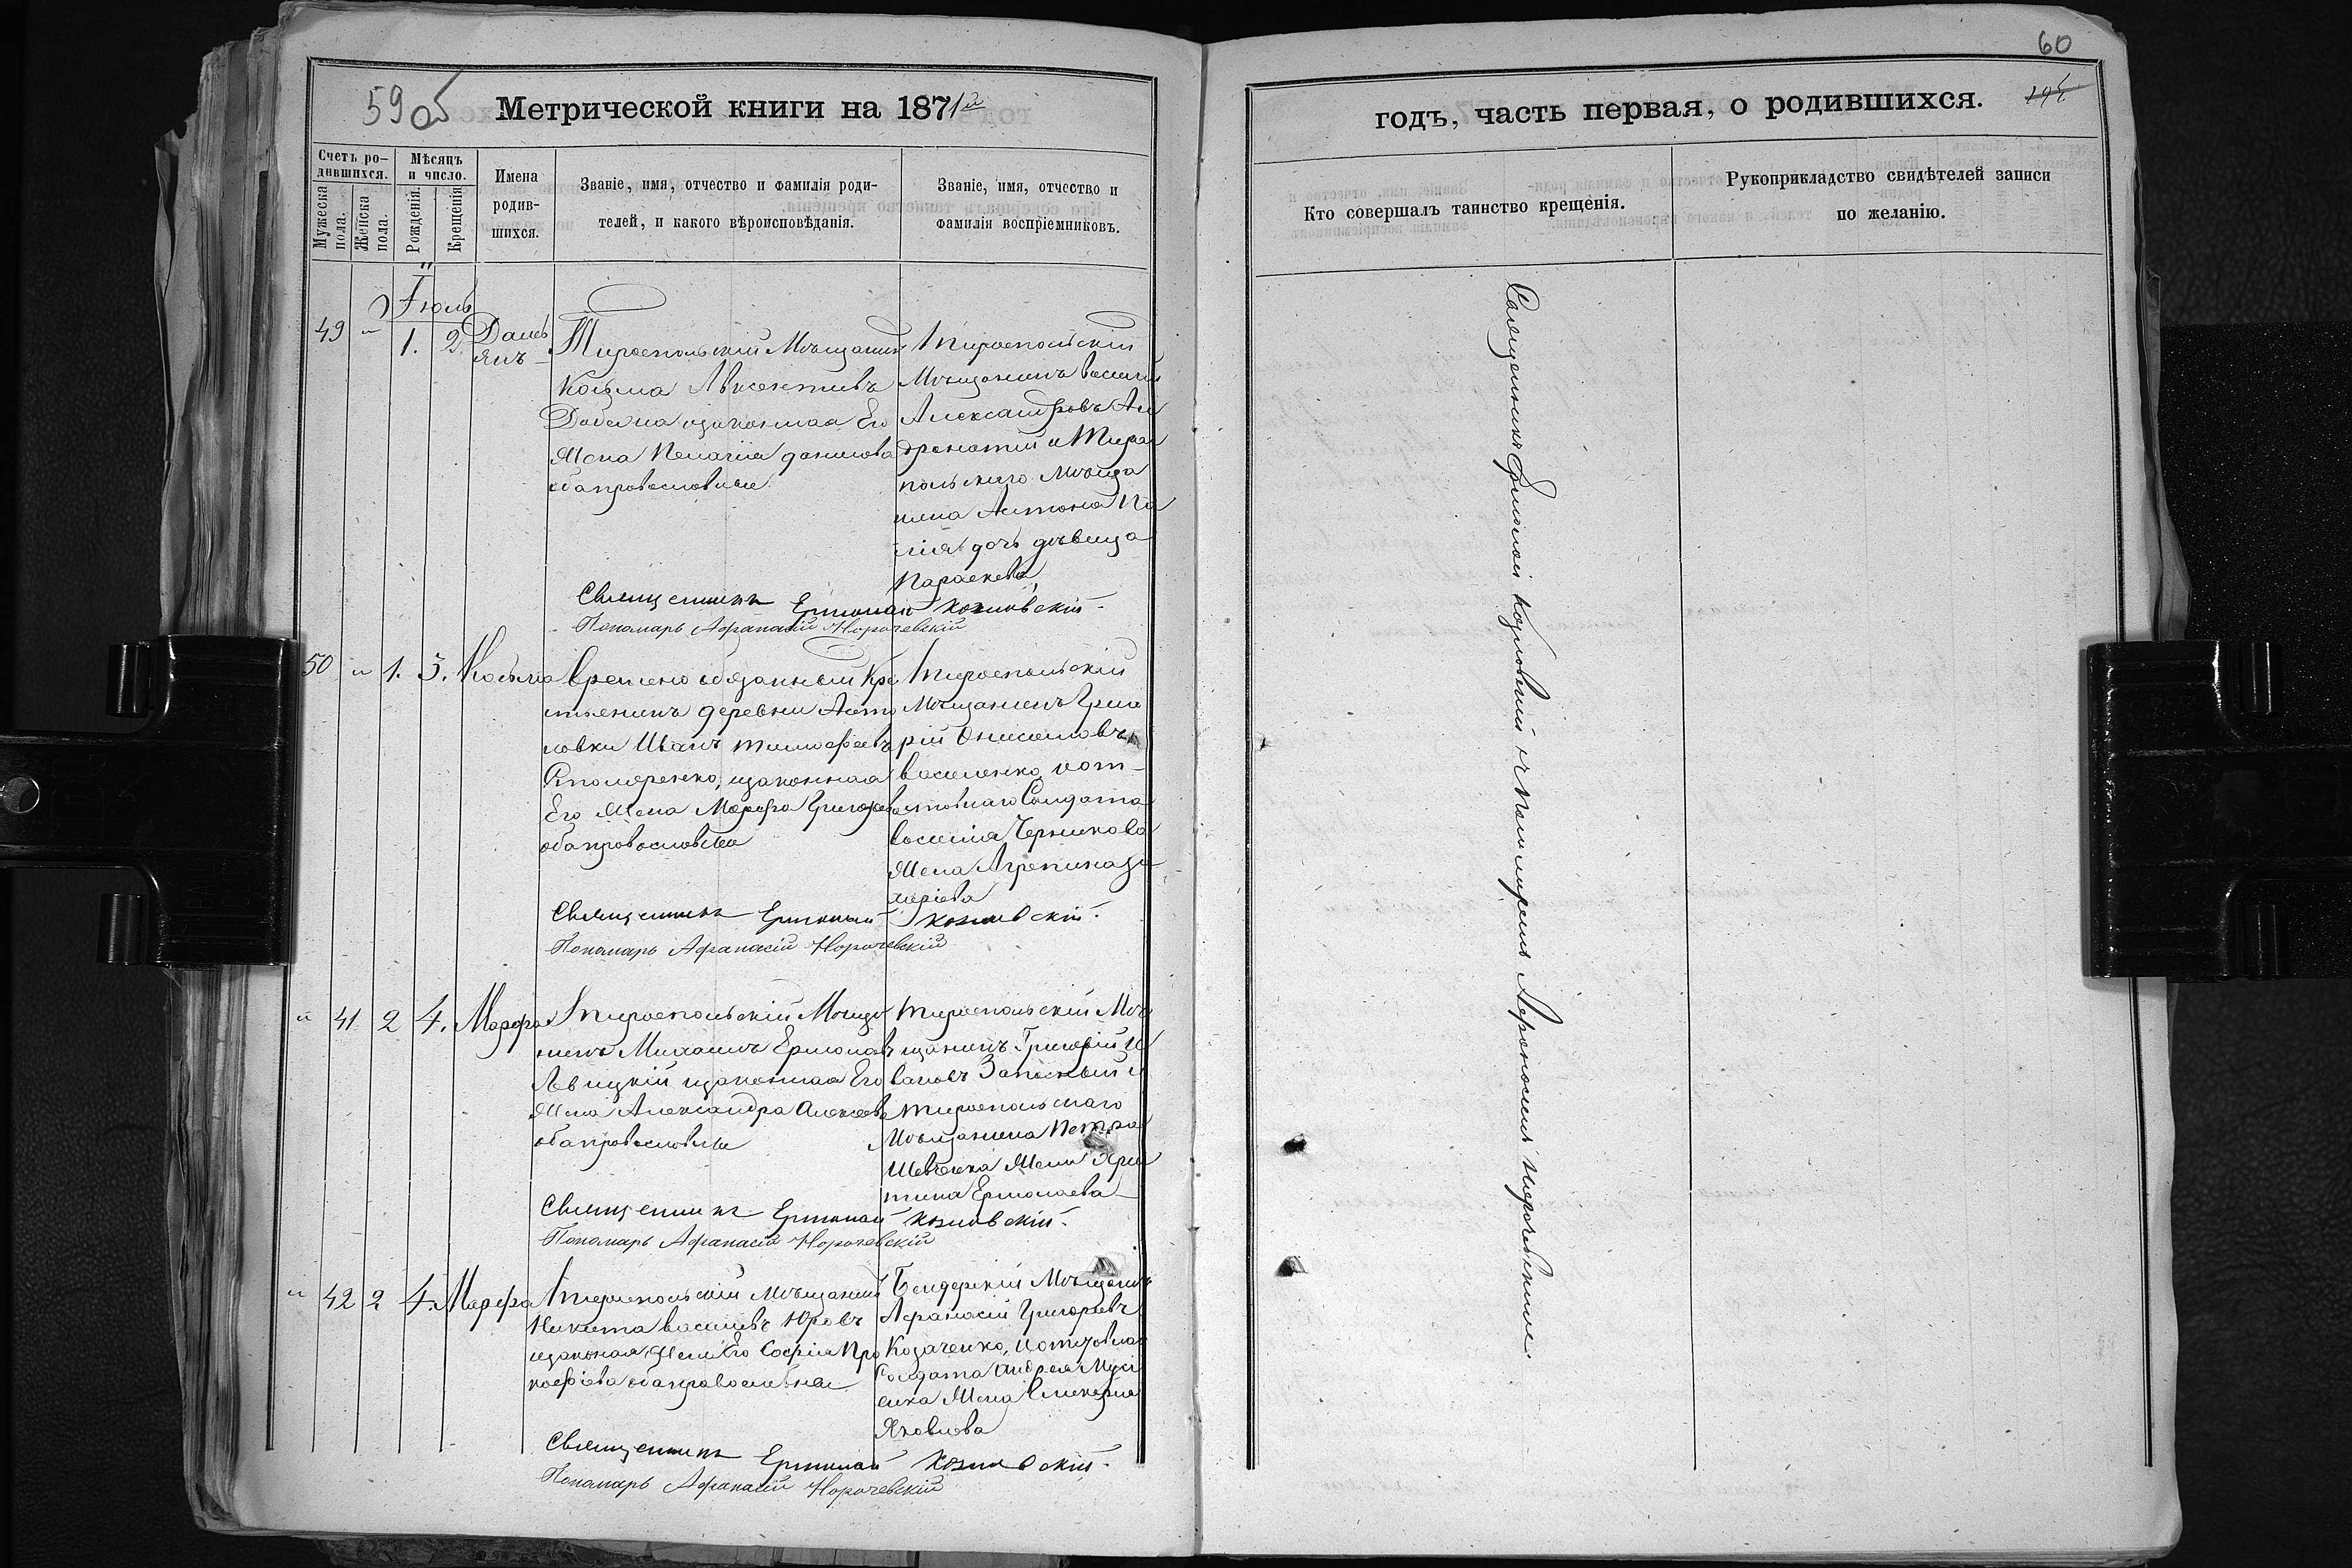 59 об
Метрической книги на 1871й
Счетъ ро-
дившихся.
Мужеска пола.
Женска пола.
Мѣсяцъ
и число.
Рожденія.
Крещенія.
Имена
родив-
шихся.
Званіе, имя, отчество и фамилія роди-
телей, и какого вѣроисповѣданія.
Званіе, имя, отчество и
фамилія воспріемниковъ.
Іюль
49 " 1. 2. Дамъ
янъ
Тираспольскій Мѣщанинъ
Косьма Авксентіевъ
изаконная Его
Жена Пелагія данилова
обаправославные
Тираспольскій
Мѣщанинъ Василій
Александровъ Ан
дронатій и Тирас
польскаго Мѣща
нина Антона Па
лія дочь дѣвица
Параскева
Священникъ Ермолай Козловскій.
Пономарь Афанасій Норочевскій
50 " 1. 3. Косьма
Временно обязанный Кре
стьянинъ деревни
ловки Иванъ тимофеевъ
изаконная
Его Жена Марфа Григорьева
обаправославные
Тирасполскій
Мѣщанинъ Григо
рій Онисимовъ
Василенко, иот-
ставнаго Солдата
василія Черникова
Жена Агрепина За
харіева
Священникъ Ермолай Козловскій.
Пономарь Афанасій Норочевскій
" 41 2 4. Марфа
Тираспольскій Мѣща
нинъ Михаилъ Ермолаевъ
Львицкій изаконная Его
Жена Александра Алексѣева
обаправославные
Тираспольскій Мѣ
щанинъ Григорій И
вановъ Запасный и
тираспольскаго
Мѣщанина Петра
Шевченка Жена Хрис
тина Ермолаева
Священникъ Ермолай Козловскій.
Пономарь Афанасій Норочевскій
" 42 2 4. Марфа
Тираспольскій Мѣщанинъ
Никита василіевъ Юровъ
изаконная Жена Его Софія Про
кофіева обаправославные
Бендерскій Мѣщанинъ
Афанасій Григорьевъ
Козаченко, иотставнаго
Солдата андрея Муси
енка Жена Гликерія
Яковлева
Священникъ Ермолай Козловскій.
Пономарь Афанасій Норочевскій
60
годъ, часть первая, о родившихся.
Кто совершалъ таинство крещенія.
Рукоприкладство свидѣтелей записи
по желанію.
Священникъ Ермолай Козловскій спономаремъ Афанасіемъ Норочевскимъ.